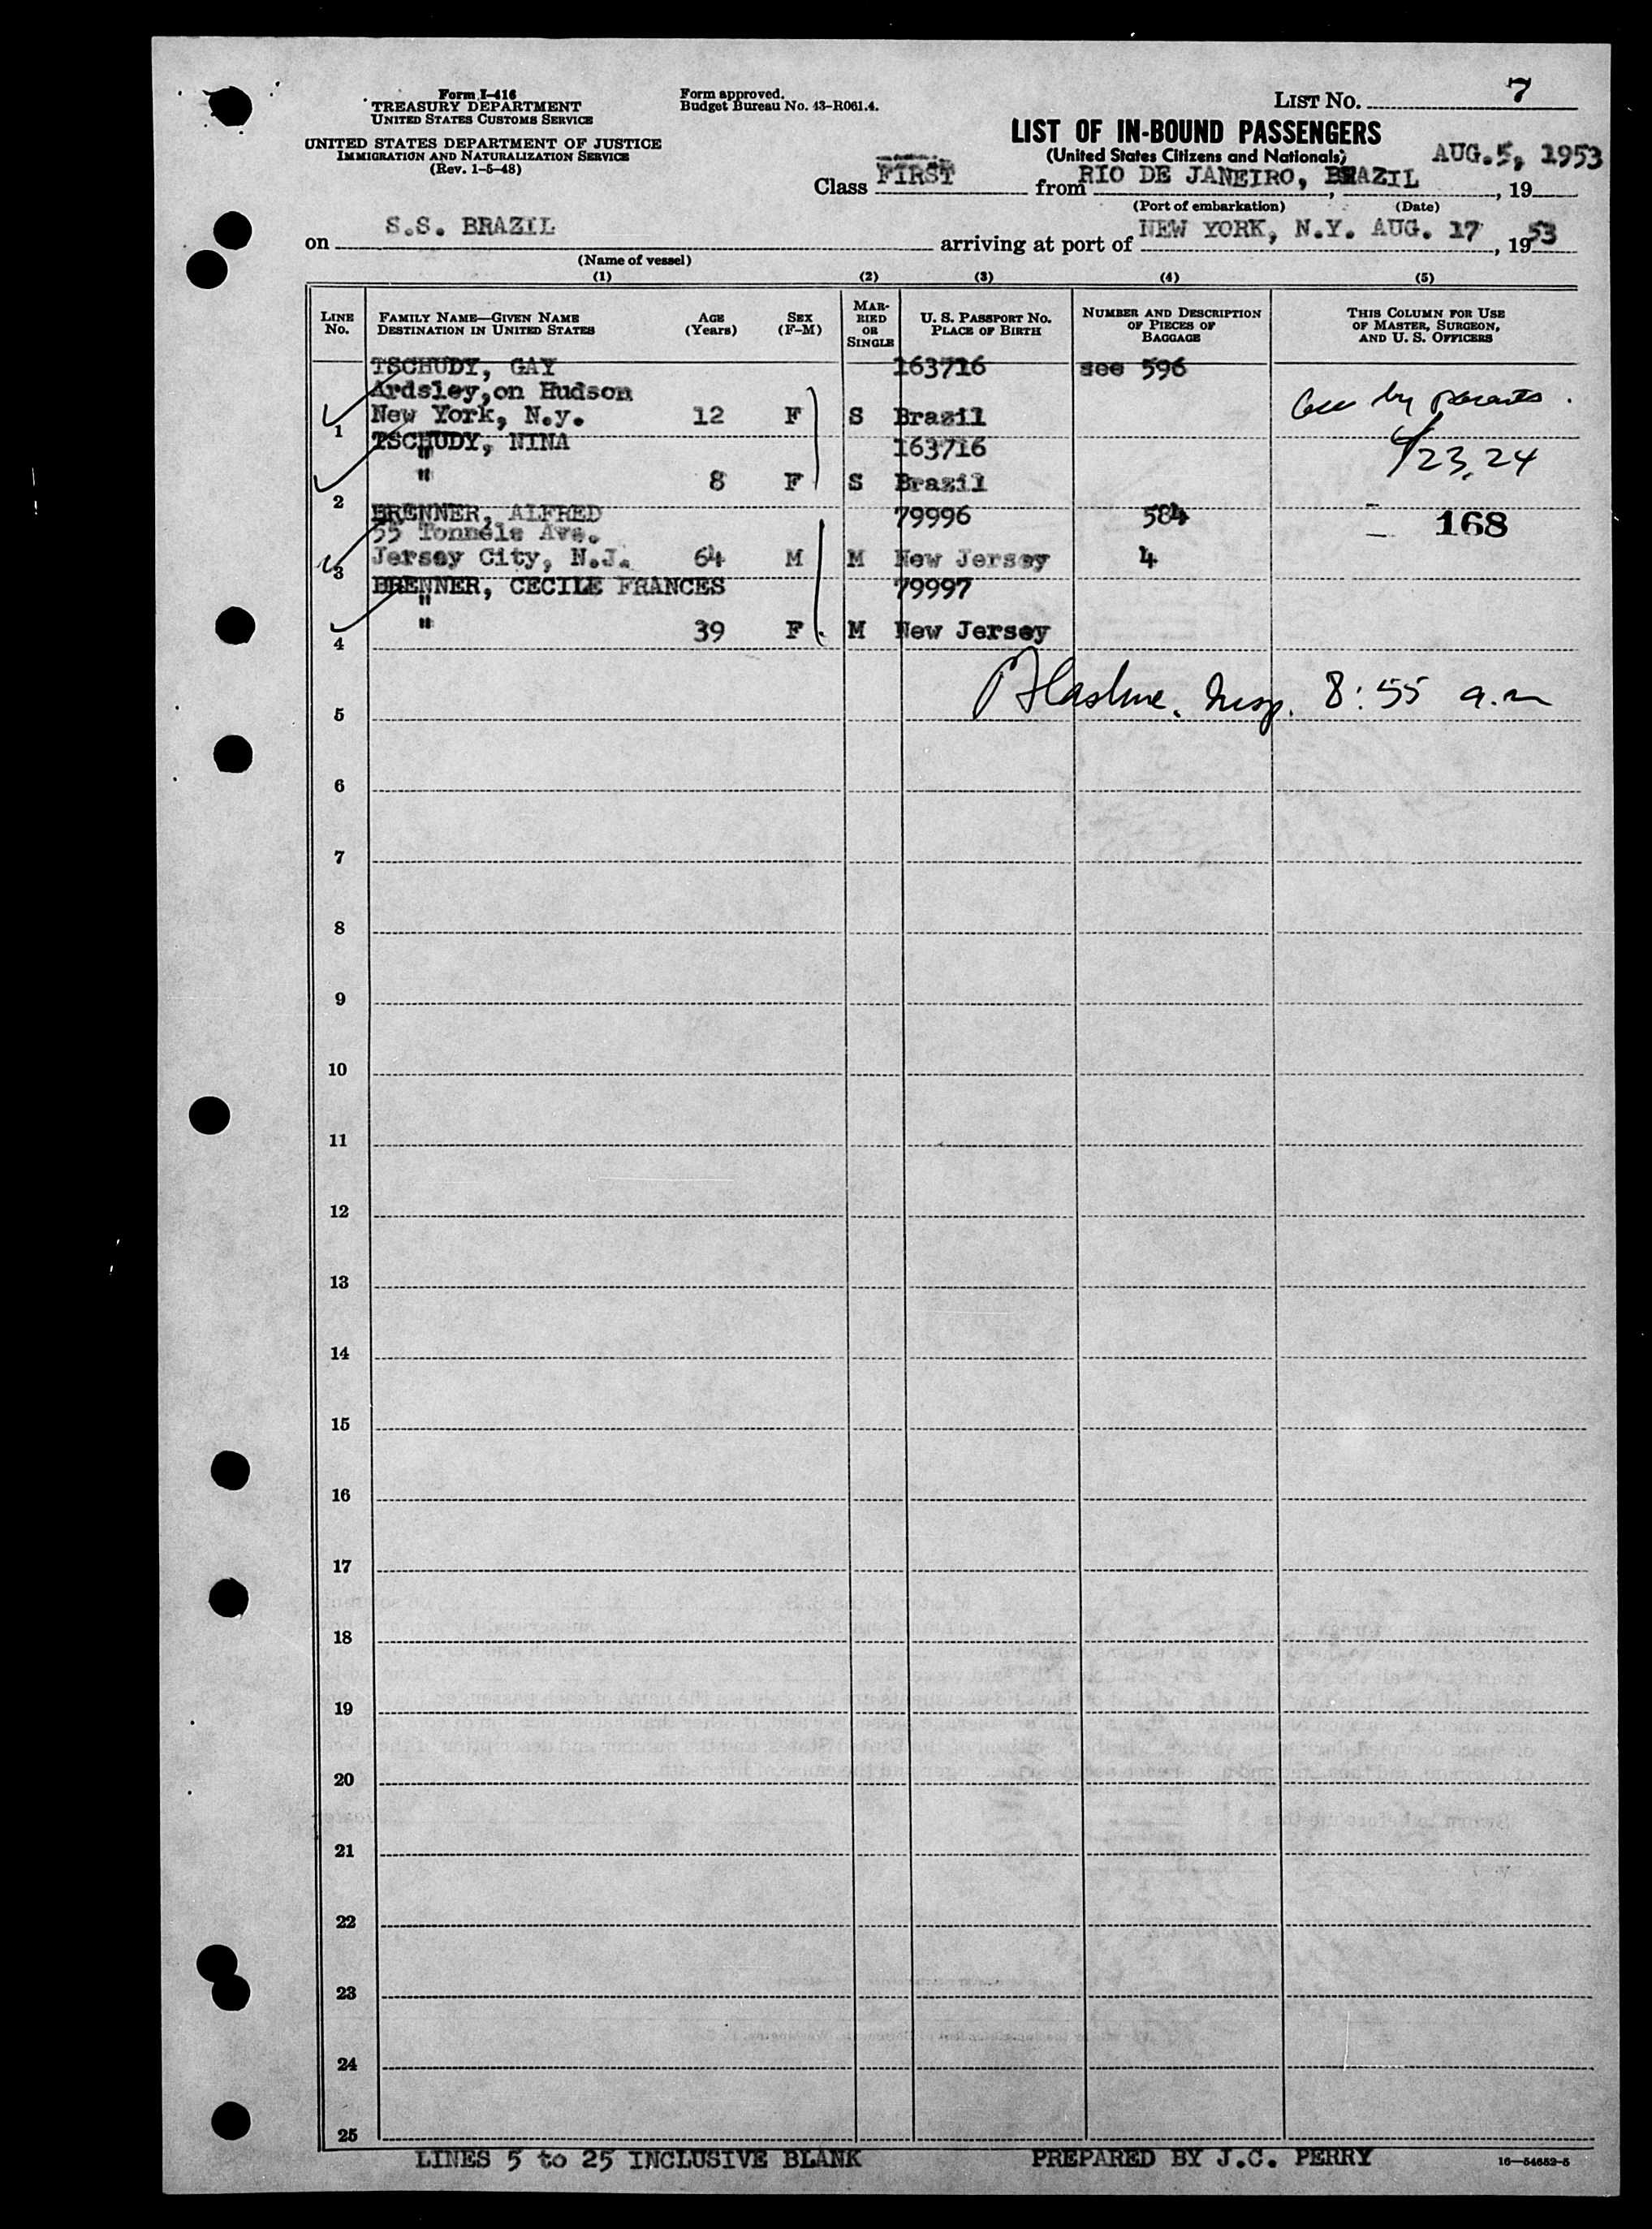 Form I-416
TREASURY DEPARTMENT
UNITED STATES CUSTOMS SERVICE
UNITED STATES DEPARTMENT OF JUSTICE
IMMIGRATION AND NATURALIZATION SERVICE
(Rev. 1-5-48)
Form approved.
Budget Bureau No. 43-R061.4.
LIST No. 7
LIST OF IN-BOUND PASSENGERS
(United States Citizens and Nationals)
AUG.5, 1953
Class FIRST from RIO DE JANEIRO, BRAZIL, 19
(Port of embarkation) (Date)
on S.S. BRAZIL arriving at port of NEW YORK, N.Y. AUG. 17, 1953
(Name of vessel)
(1) (2) (3) (4) (5)
LINE No. FAMILY NAME—GIVEN NAME DESTINATION IN UNITED STATES AGE (Years) SEX (F-M) MARRIED OR SINGLE U. S. PASSPORT No. PLACE OF BIRTH NUMBER AND DESCRIPTION OF PIECES OF BAGGAGE THIS COLUMN FOR USE OF MASTER, SURGEON, AND U. S. OFFICERS
TSCHUDY, GAY 163716 see 596
Ardsley,on Hudson
by parents.
1 New York, N.y. 12 F S Brazil
TSCHUDY, NINA 163716
" 23,24
2 " 8 F S Brazil
BRENNER, ALFRED 79996 584 168
55 Tonnele Ave.
3 Jersey City, N.J. 64 M M New Jersey 4
BRENNER, CECILE FRANCES 79997
"
4 " 39 F M New Jersey
Insp. 8:55 a.m
5
6
7
8
9
10
11
12
13
14
15
16
17
18
19
20
21
22
23
24
25
LINES 5 to 25 INCLUSIVE BLANK PREPARED BY J.C. PERRY 16—54652-5